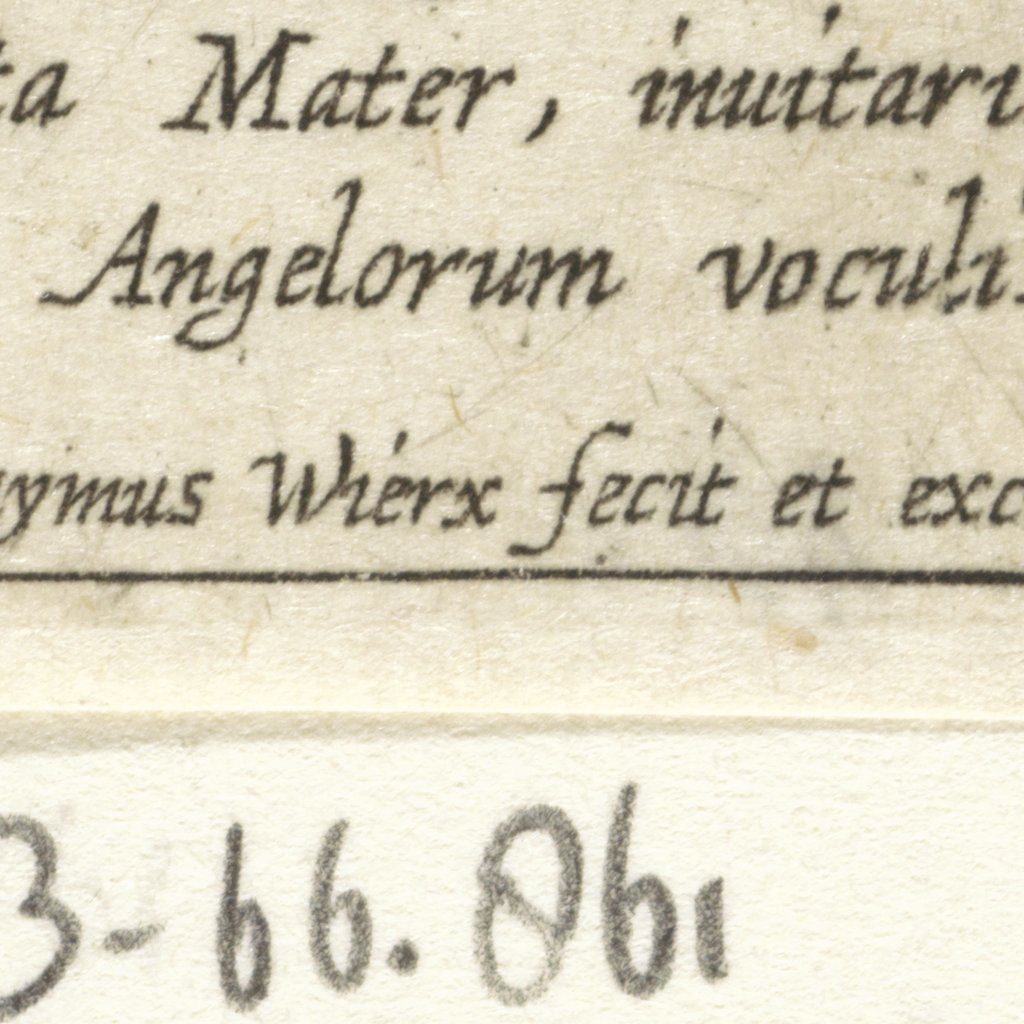 ta Mater, inuitari
Angelorum voculis
ymus Wierx fecit et exc
3-66.861